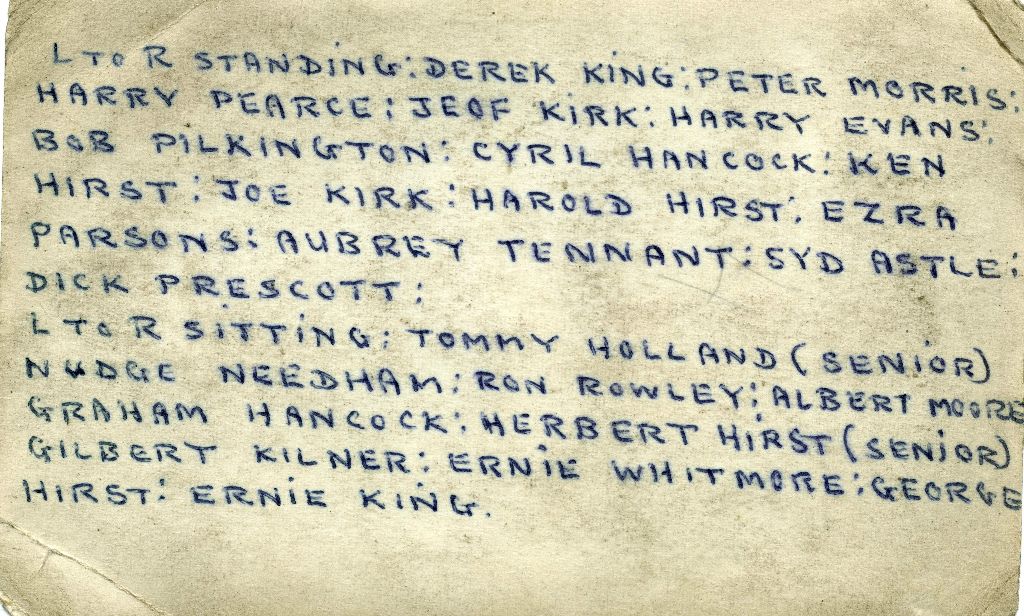 L TO R STANDING: DEREK KING: PETER MORRIS:
HARRY PEARCE: JEOF KIRK: HARRY EVANS:
BOB PILKINGTON: CYRIL HANCOCK: KEN
HIRST: JOE KIRK: HAROLD HIRST: EZRA
PARSONS: AUBREY TENNANT: SYD ASTLE:
DICK PRESCOTT:
L TO R SITTING: TOMMY HOLLAND (SENIOR)
NUDGE NEEDHAM: RON ROWLEY: ALBERT MOORE
GRAHAM HANCOCK: HERBERT HIRST (SENIOR)
GILBERT KILNER: ERNIE WHITMORE: GEORGE
HIRST: ERNIE KING.